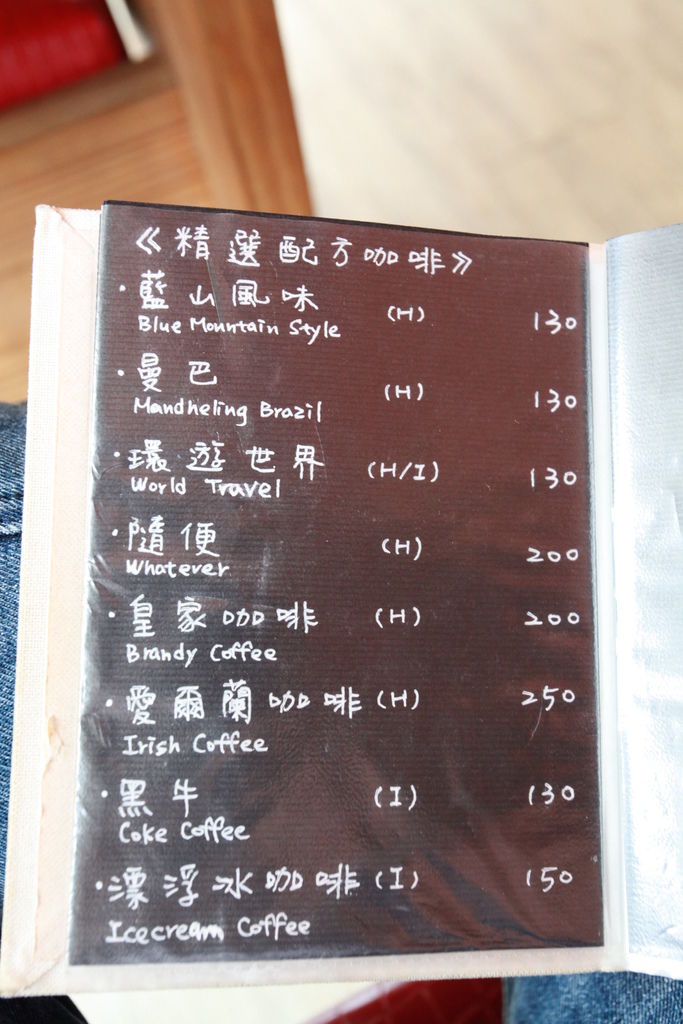 《精選配方咖啡》
·藍山風味 (H) 130
Blue Mountain Style
·曼巴 (H) 130
Mandheling Brazil
·環遊世界 (H/I) 130
World Travel
·隨便 (H) 200
Whatever
·皇家咖啡 (H) 200
Brandy Coffee
·愛爾蘭咖啡 (H) 250
Irish Coffee
·黑牛 (I) 130
Coke Coffee
·漂浮冰咖啡 (I) 150
Icecream Coffee